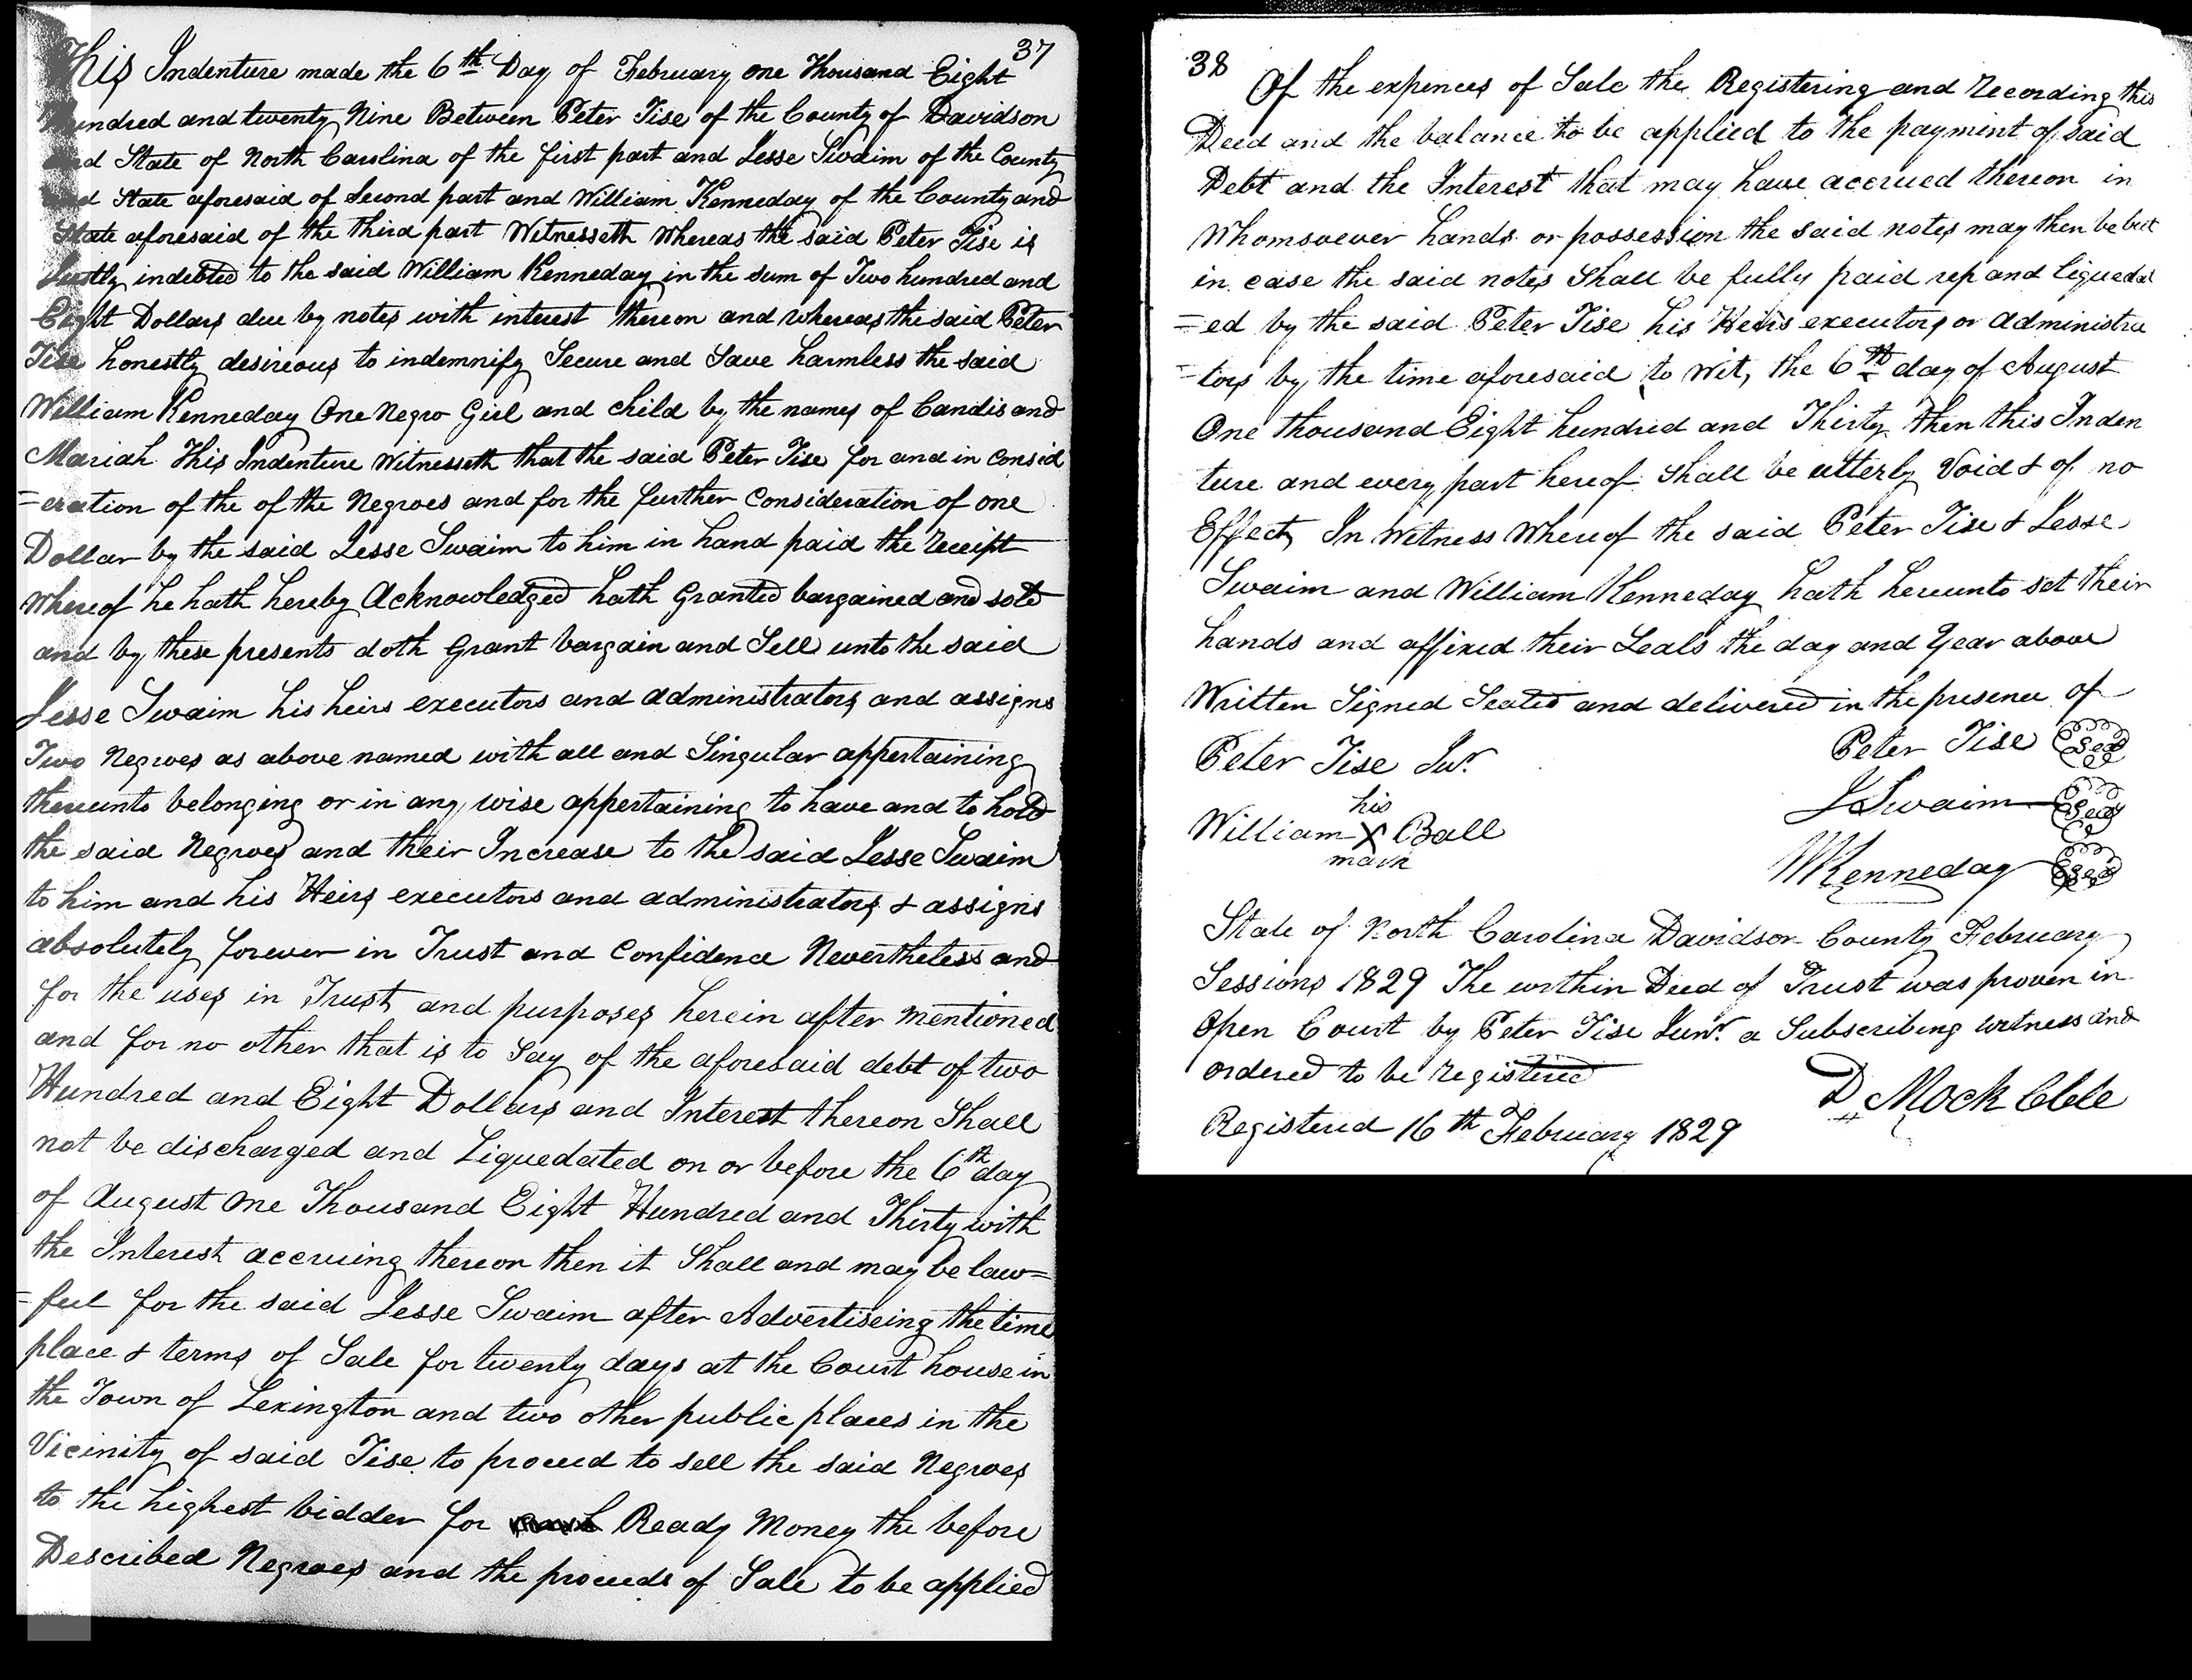 37
This Indenture made the 6th Day of February one Thousand Eight
Hundred and twenty Nine Between Peter Tise of the County of Davidson
and State of North Carolina of the first part and Jesse Swaim of the County
and State aforesaid of Second part and William Kenneday of the County and
State aforesaid of the third part Witnesseth Whereas the said Peter Tise is
Justly indebted to the said William Kenneday in the sum of Two hundred and
Eight Dollars due by notes with interest thereon and whereas the said Peter
Tise honestly desireous to indemnify Secure and Save harmless the said
William Kenneday One Negro Girl and child by the names of Candis and
Mariah This Indenture Witnesseth that the said Peter Tise for and in Consid
=eration of the of the Negroes and for the further Consideration of one
Dollar by the said Jesse Swaim to him in hand paid the receipt
Whereof he hath hereby Acknowledged hath Granted bargained and sold
and by these presents doth Grant bargain and Sell unto the said
Jesse Swaim his heirs executors and administrators and assigns
Two Negroes as above named with all and Singular appertaining
thereunto belonging or in any wise appertaining to have and to hold
the said Negroes and their Increase to the said Jesse Swaim
to him and his Heirs executors and administrators & assigns
absolutely forever in Trust and Confidence Nevertheless and
for the uses in Trust and purposes herein after mentioned
and for no other that is to Say of the aforesaid debt of two
Hundred and Eight Dollars and Interest thereon Shall
not be discharged and Liquedated on or before the 6th day
of August One Thousand Eight Hundred and Thirty with
the Interest accruing thereon then it Shall and may be law=
=full for the said Jesse Swaim after Advertiseing the time
place & terms of Sale for twenty days at the Court house in
the Town of Lexington and two other public places in the
Vicinity of said Tise to proceed to sell the said Negroes
to the highest bidder for Ready Money the before
Described Negroes and the proceeds of Sale to be applied
38
Of the expences of Sale the Registering and Recording this
Deed and the balance to be applied to the payment of said
Debt and the Interest that may have accrued thereon in
Whomsoever hands or possession the said notes may then be but
in case the said notes Shall be fully paid up and liquedat
=ed by the said Peter Tise his Heirs executors or Administra
=tors by the time aforesaid to Wit, the 6th day of August
One thousand Eight hundred and Thirty then this Inden
ture and every part hereof Shall be utterly Void & of no
Effect, In Witness Whereof the said Peter Tise & Jesse
Swaim and William Kenneday hath hereunto set their
hands and affixed their Seals the day and Year above
Written Signed Sealed and delivered in the presence of
Peter Tise Seal
Peter Tise Jur.
J Swaim Seal
his
William X Ball
mark
WKenneday Seal
State of North Carolina Davidson County February
Sessions 1829 The within Deed of Trust was proven in
Open Court by Peter Tise Junr. a Subscribing witness and
ordered to be registered
D Mock Clk
Registered 16th February 1829